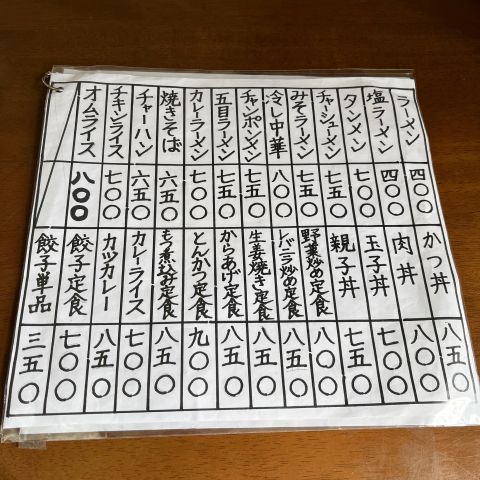 ラーメン 四〇〇
塩ラーメン 四〇〇
タンメン 七〇〇
チャーシューメン 七五〇
みそラーメン 七五〇
冷し中華 八〇〇
チャンポンメン 七五〇
五目ラーメン 七五〇
カレーラーメン 七〇〇
焼きそば 六五〇
チャーハン 六五〇
チキンライス 七〇〇
オムライス 八〇〇
かつ丼 八五〇
肉丼 八〇〇
玉子丼 七〇〇
親子丼 七五〇
野菜炒め定食 八〇〇
レバニラ炒め定食 八五〇
生姜焼き定食 八五〇
からあげ定食 八五〇
とんかつ定食 九〇〇
もつ煮込み定食 八五〇
カレーライス 七〇〇
カツカレー 八五〇
餃子定食 七〇〇
餃子単品 三五〇